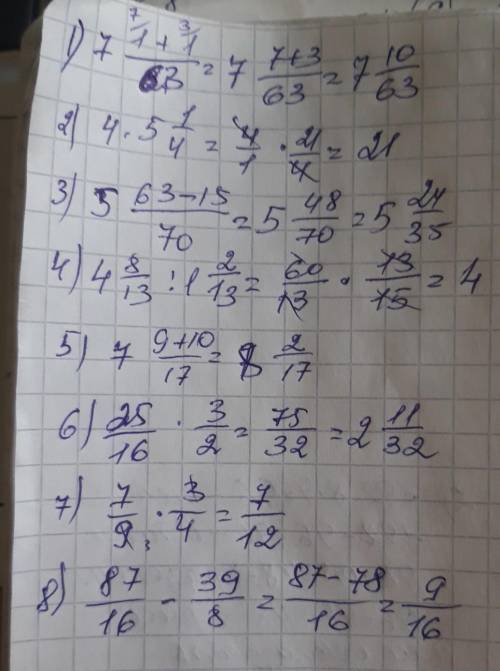 1) 7 (⁷/1 + ³/1)/63 = 7 (7+3)/63 = 7 10/63
2) 4 · 5 1/4 = 4/1 · 21/4 = 21
3) 5 (63-15)/70 = 5 48/70 = 5 24/35
4) 4 8/13 : 1 2/13 = 60/13 · 13/15 = 4
5) 7 (9+10)/17 = 8 2/17
6) 25/16 · 3/2 = 75/32 = 2 11/32
7) 7/9₃ · 3/4 = 7/12
8) 87/16 - 39/8 = (87-78)/16 = 9/16